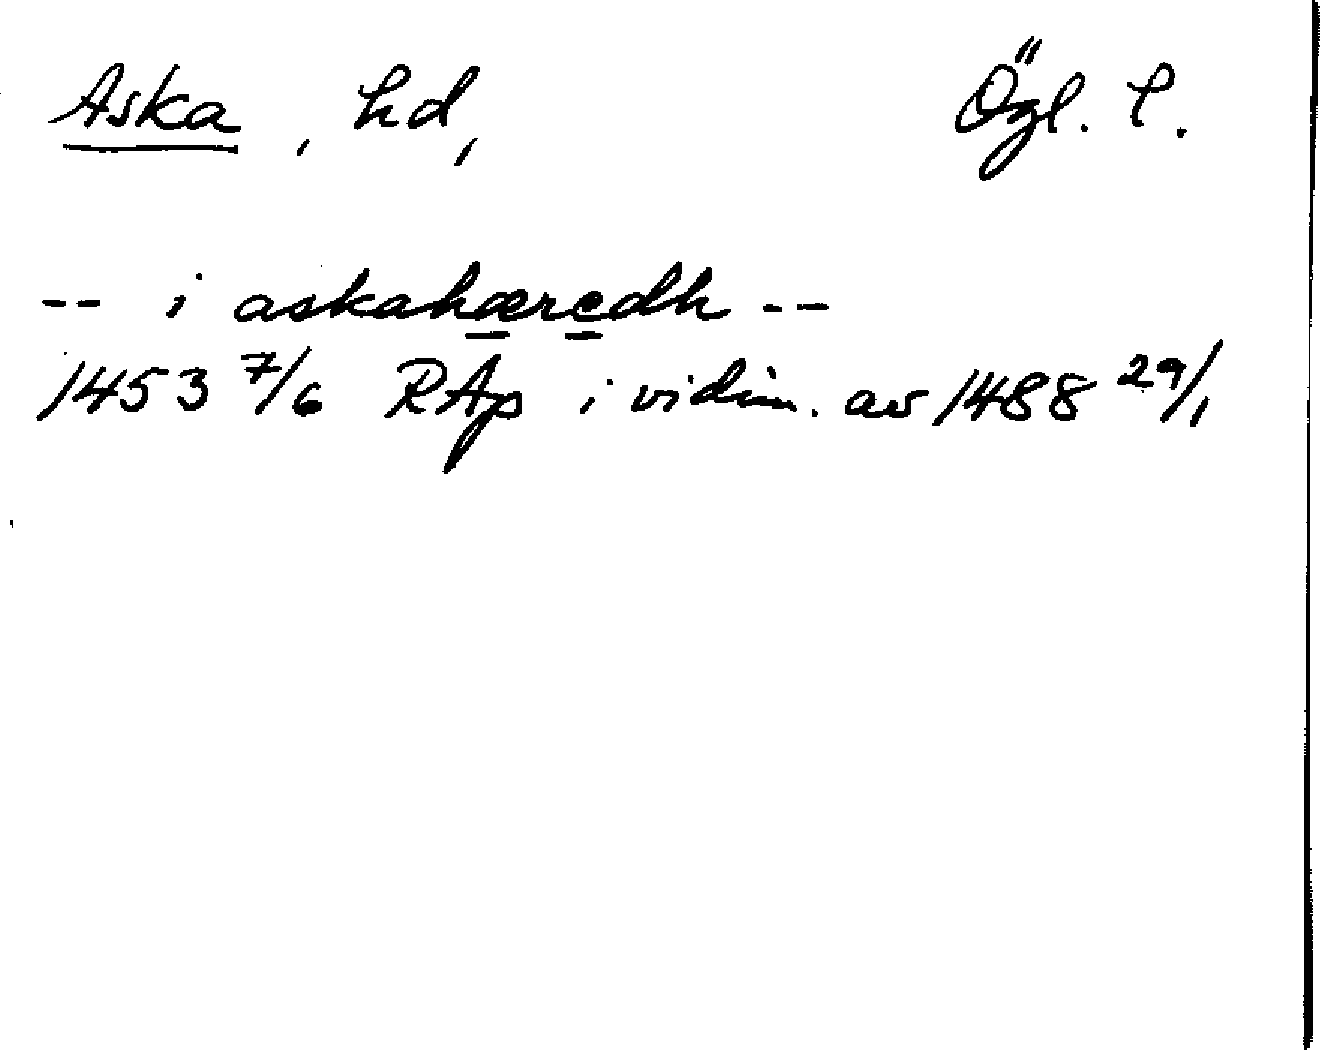 Aska, hd, Ögl. l.
-- i askahæredh --
1453 7/6 RAp i vidim. av 1488 29/1